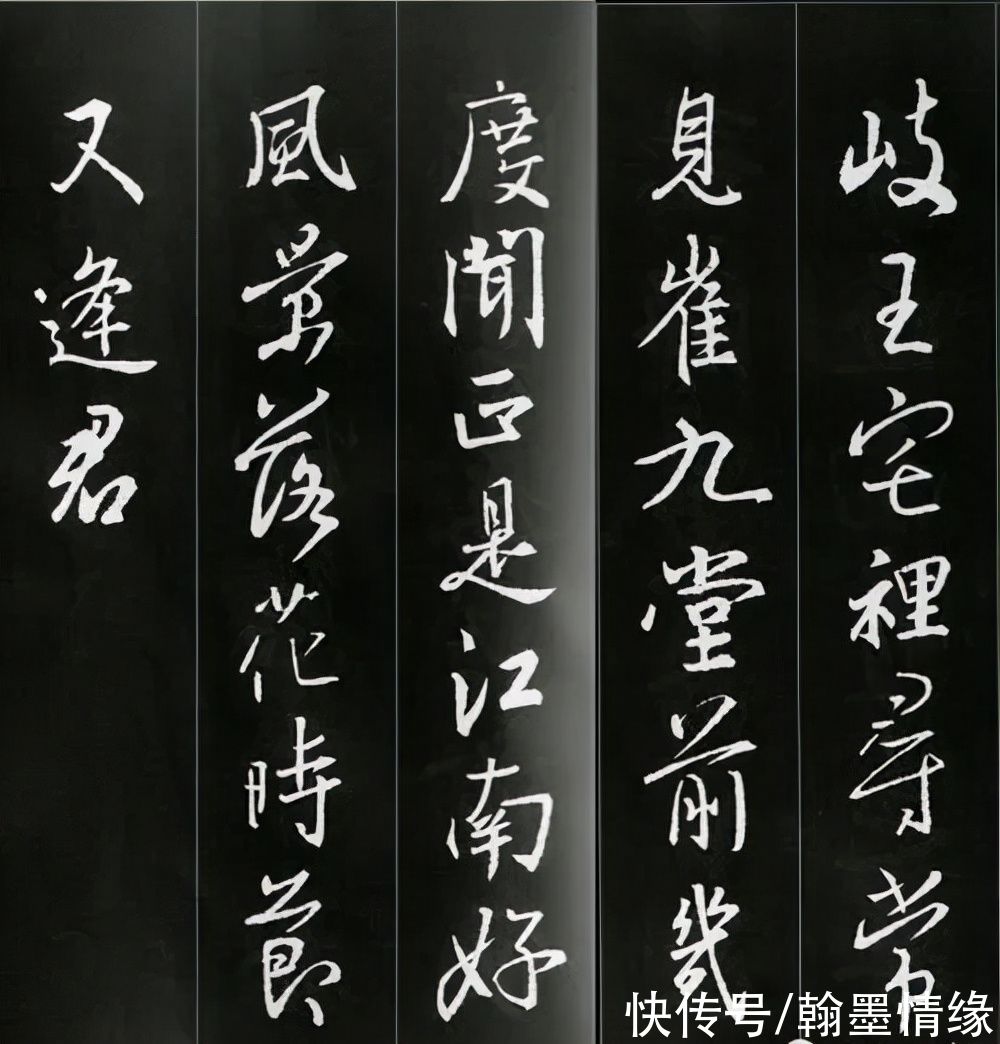 岐王宅裡尋常
見崔九堂前幾
度聞正是江南好
風景落花時節
又逢君
快传号/翰墨情缘